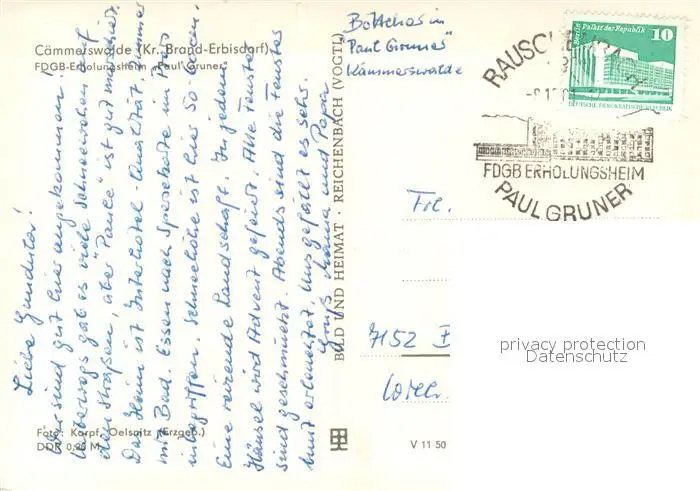 Cämmerswalde (Kr. Brand-Erbisdorf)
FDGB-Erholungsheim „Paul Gruner"
Liebe
Wir sind gut hier angekommen!
Unterwegs gab es viele Schneewehen
den Straßen, aber "Paule" ist gut marschiert.
Das Heim ist Interhotel-Qualität. Zimmer
mit Bad. Essen nach Speisekarte im Preis
inbegriffen. Schneehöhe ist hier 50-60 cm.
Eine reizende Landschaft. In jedem
Häusel wird Advent gefeiert. Alle Fenster
sind geschmückt. Abends sind die Fenster
bunt erleuchtet. Uns gefällt es sehr.
Gruß Mama und Papa
Foto: Karpf, Oelsnitz (Erzgeb.)
DDR 0,20 M
BILD UND HEIMAT · REICHENBACH (VOGTL)
V 11 50
in
"Paul Gruner"
Kämmerswalde
Berlin Palast der Republik
10
DEUTSCHE DEMOKRATISCHE REPUBLIK
FDGB ERHOLUNGSHEIM
PAUL GRUNER
7152
privacy protection
Datenschutz